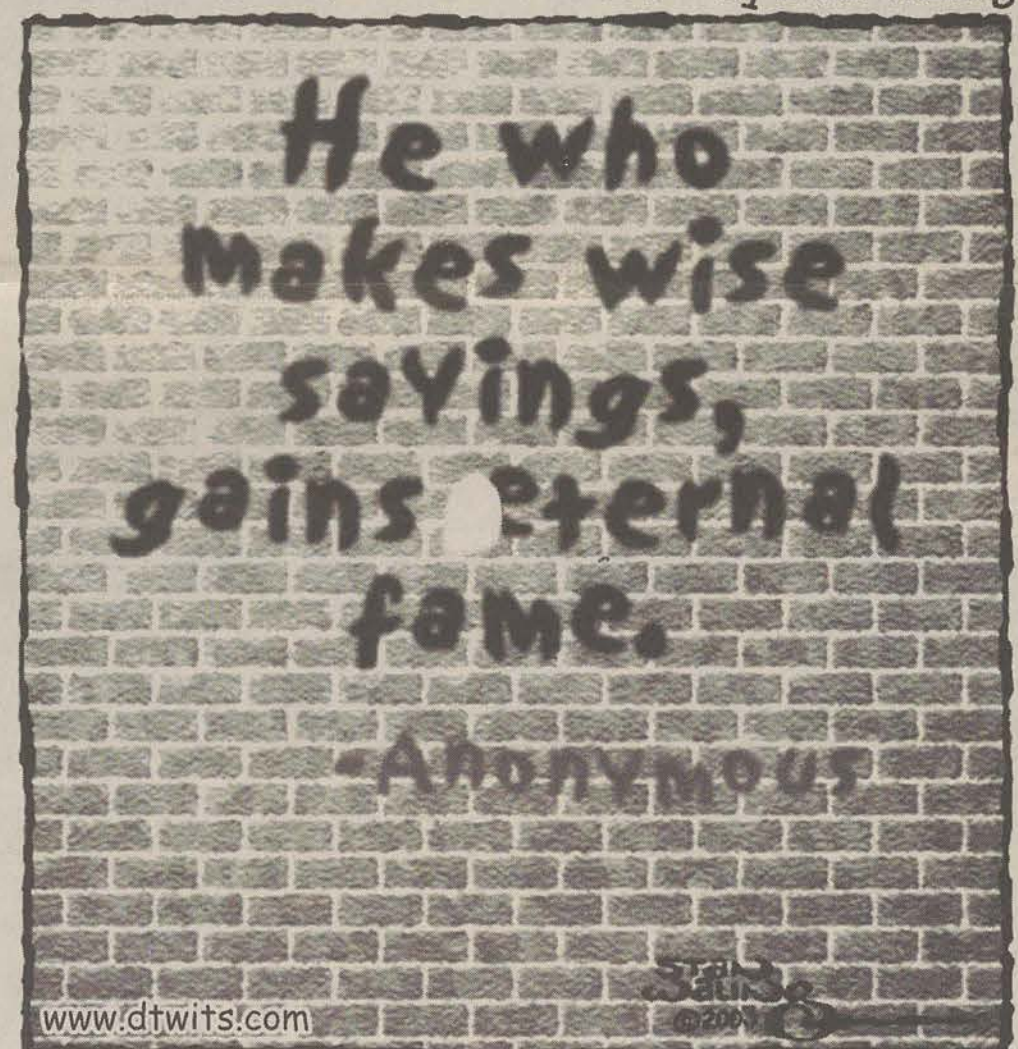 He who
makes wise
sayings,
gains eternal
fame.
-Anonymous
www.dtwits.com